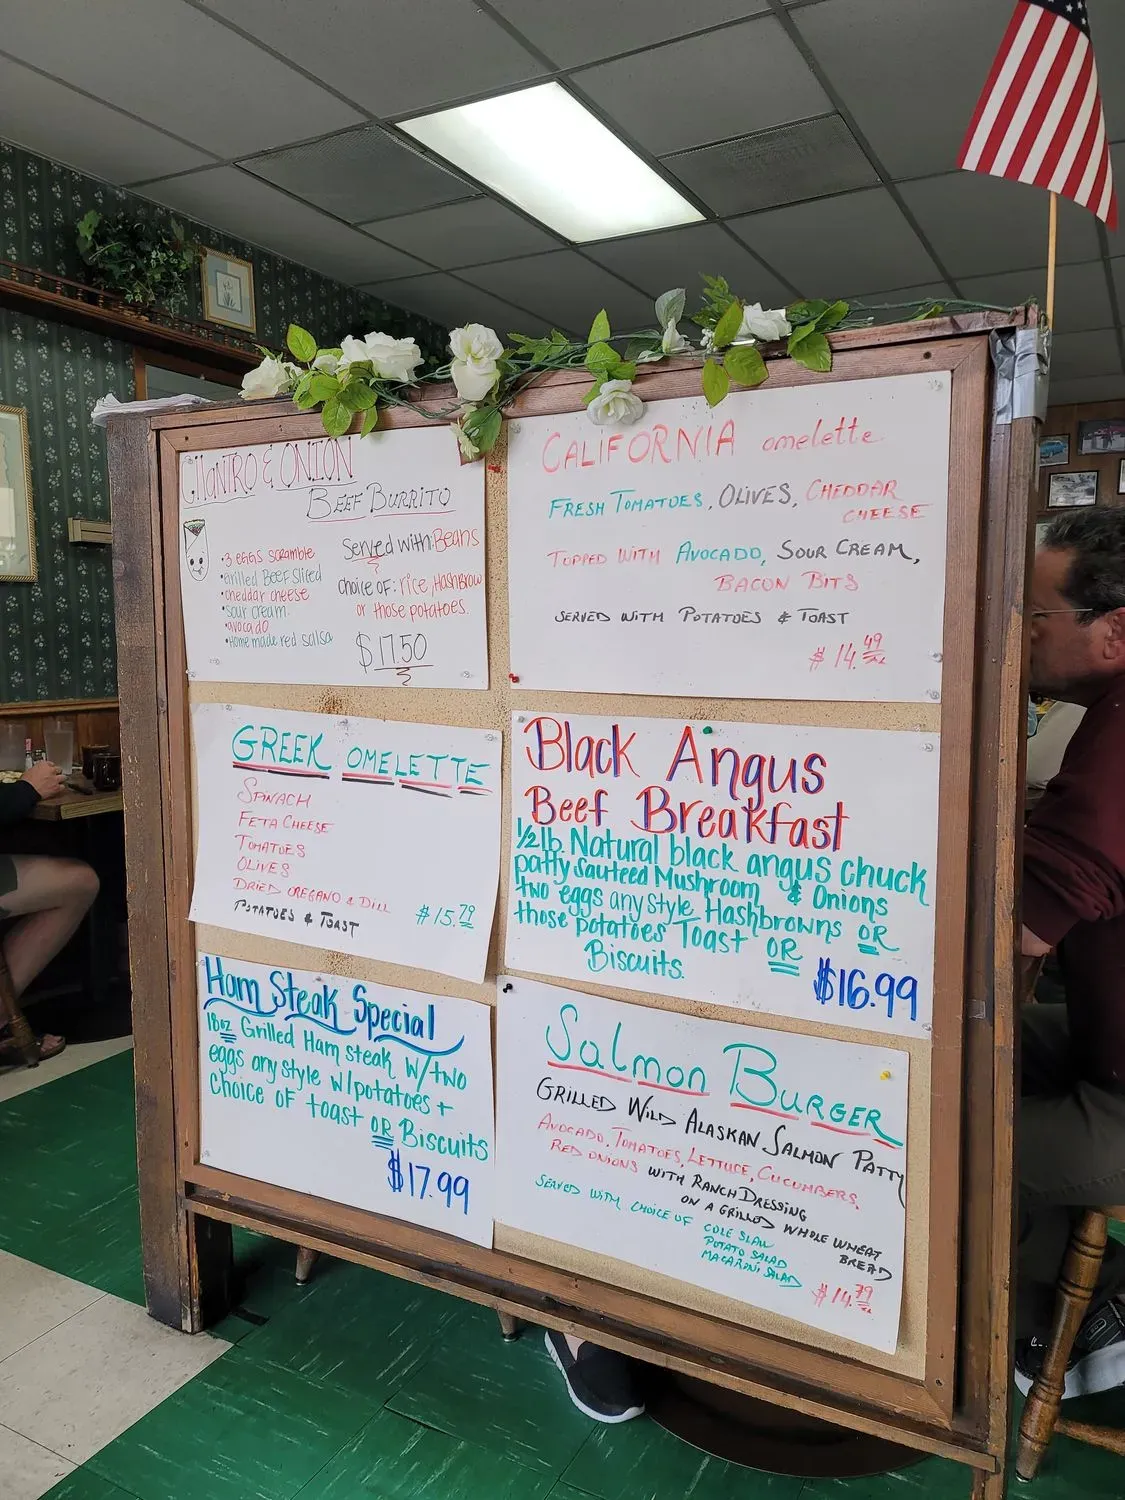 CILANTRO & ONION
BEEF BURRITO
•3 eggs scramble
•Grilled Beef Sliced
•cheddar cheese
•sour cream.
•avocado
•Home made red salsa
Served with: Beans
choice of: rice, Hashbrow
or those potatoes.
$17.50
CALIFORNIA omelette
FRESH TOMATOES, OLIVES, CHEDDAR
CHEESE
TOPPED WITH AVOCADO, SOUR CREAM,
BACON BITS
SERVED WITH POTATOES & TOAST
$14.49
GREEK OMELETTE
SPINACH
FETA CHEESE
TOMATOES
OLIVES
DRIED OREGANO & DILL
POTATOES & TOAST
$15.79
Black Angus
Beef Breakfast
1/2lb Natural black angus chuck
patty sauteed Mushroom & Onions
two eggs any style, Hashbrowns OR
those potatoes Toast OR
Biscuits.
$16.99
Ham Steak Special
18oz Grilled Ham steak w/two
eggs any style w/potatoes +
Choice OF toast OR Biscuits
$17.99
Salmon BURGER
GRILLED WILD ALASKAN SALMON PATTY
AVOCADO, TOMATOES, LETTUCE, CUCUMBERS,
RED ONIONS WITH RANCH DRESSING
ON A GRILLED WHOLE WHEAT
BREAD
SERVED WITH CHOICE OF COLE SLAW
POTATO SALAD
MACARONI SALAD
$14.79